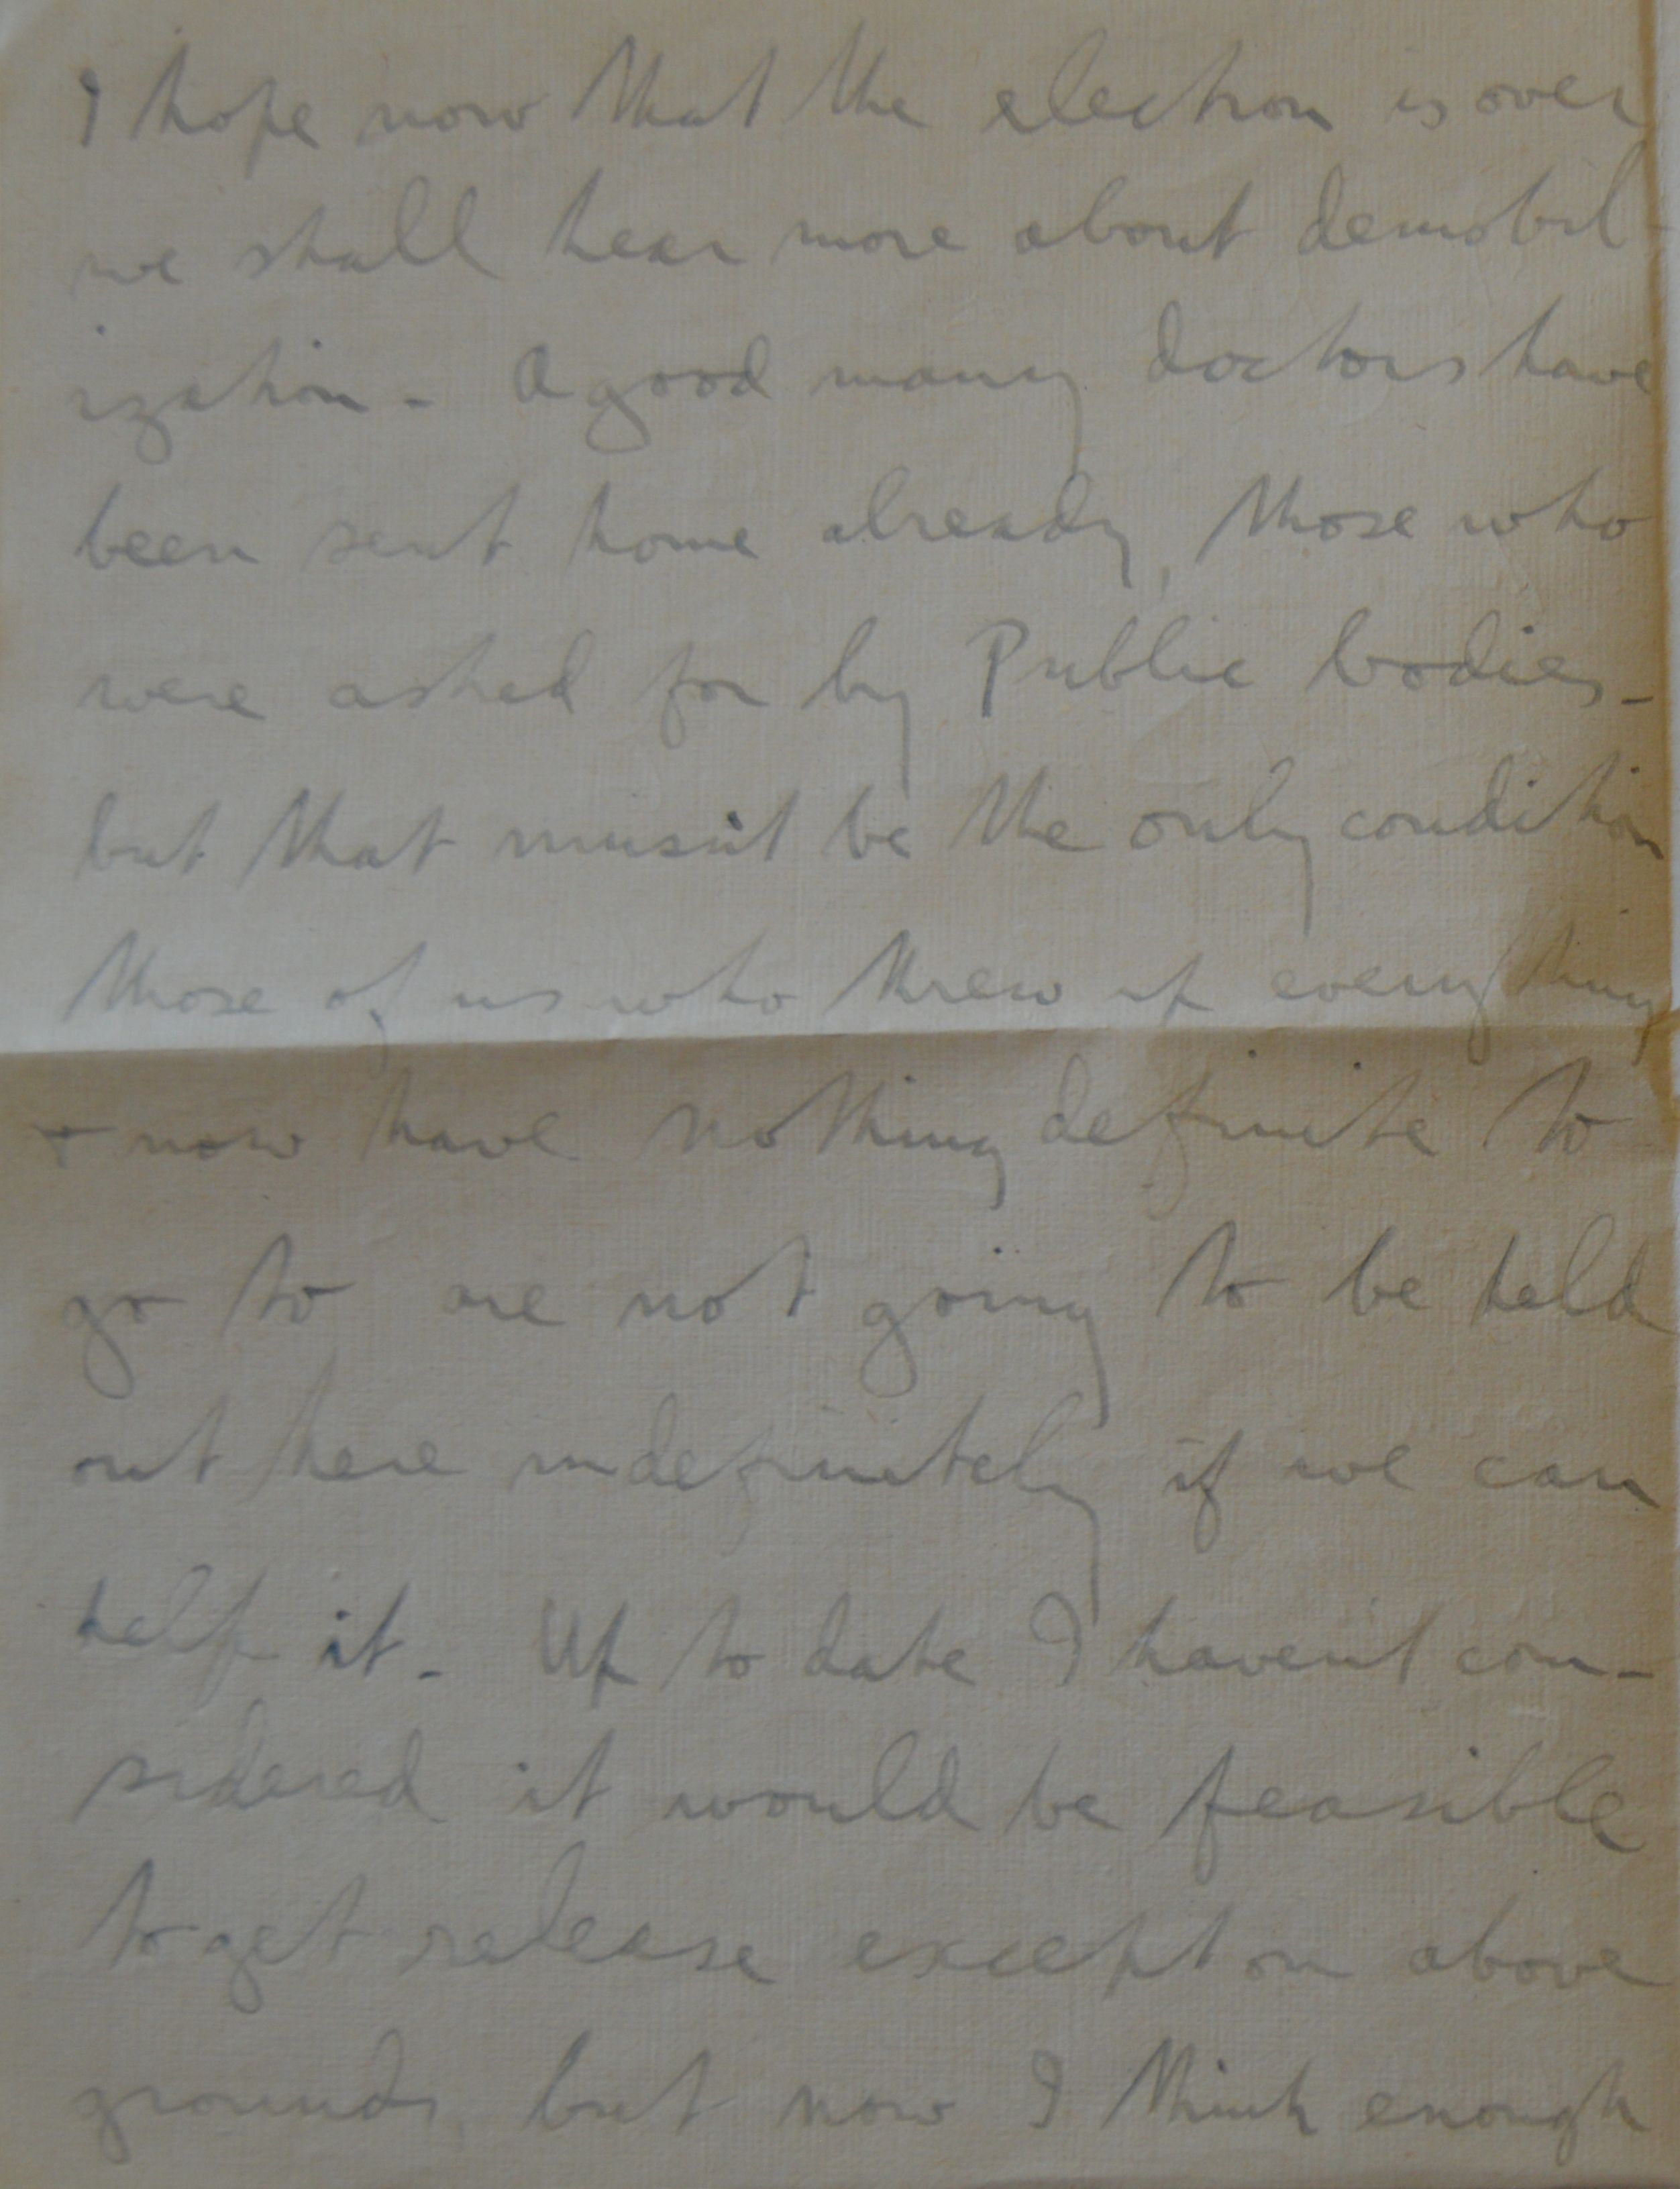 I hope now that the election is over
we shall hear more about demobil-
ization - A good many doctors have
been sent home already, those who
were asked for by Public bodies -
but that musn't be the only condition
those of us who threw up everything
+ now have nothing definite to
go to are not going to be held
out here indefinitely if we can
help it - Up to date I haven't con-
sidered it would be feasible
to get release except on above
grounds, but now I think enough